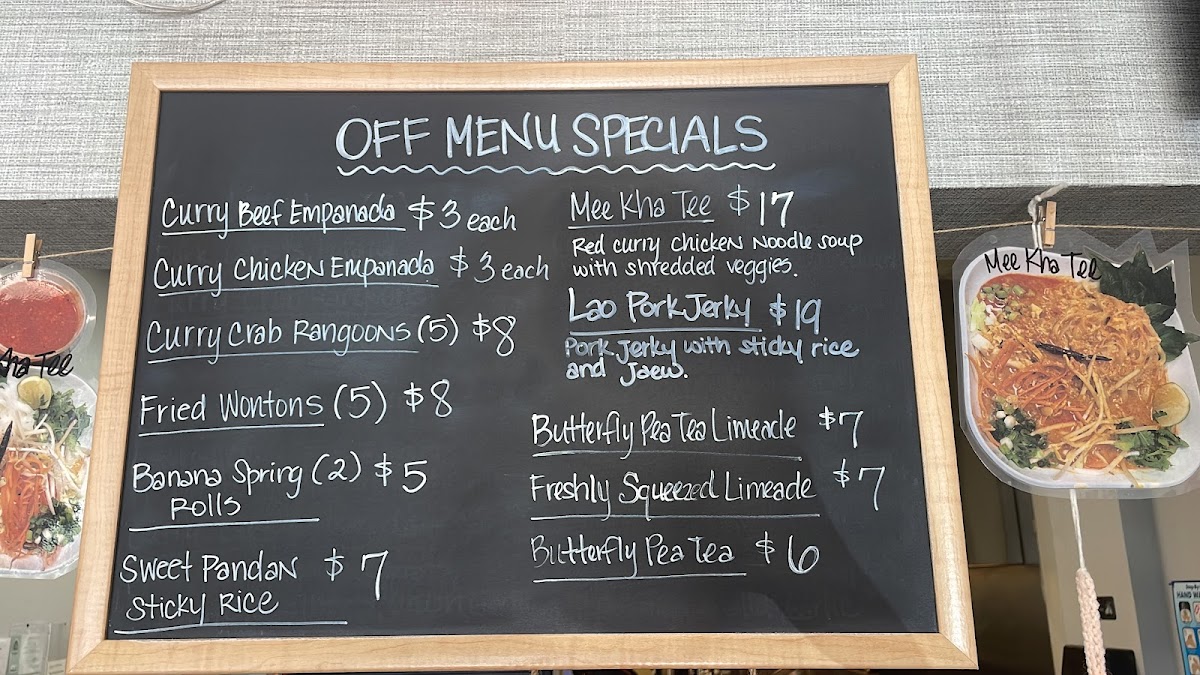 OFF MENU SPECIALS
Curry Beef Empanada $3 each
Curry Chicken Empanada $3 each
Curry Crab Rangoons (5) $8
Fried Wontons (5) $8
Banana Spring (2) $5
Rolls
Sweet Pandan $7
Sticky Rice
Mee Kha Tee $17
Red curry chicken noodle soup
with shredded veggies.
Lao Pork Jerky $19
Pork jerky with sticky rice
and Jaew.
Butterfly Pea Tea Limeade $7
Freshly Squeezed Limeade $7
Butterfly Pea Tea $6
Mee Kha Tee
Kha Tee